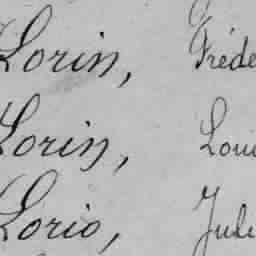 Lorin, Fréde
Lorin, Loui
Lorio, Jule